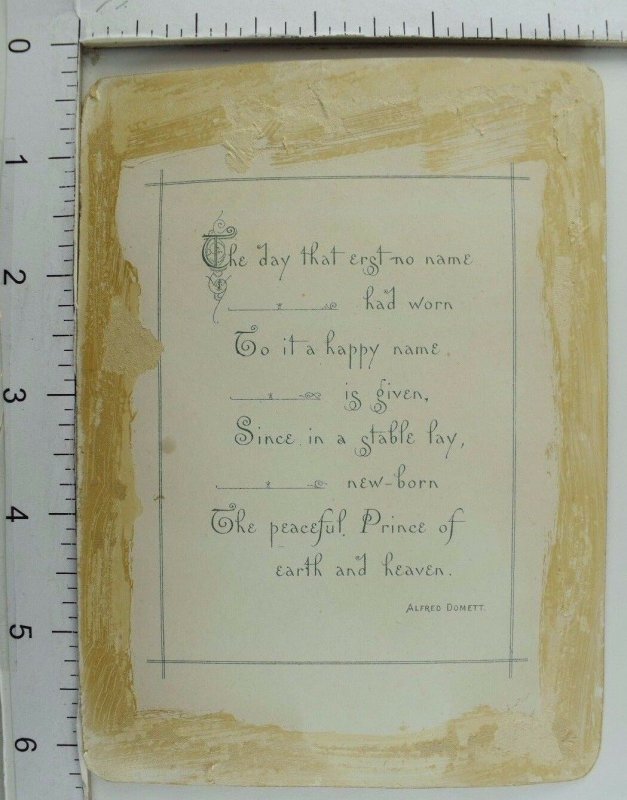 0
1
2
3
4
5
6
The day that erst no name
had worn
To it a happy name
is given,
Since in a stable lay,
new-born
The peaceful Prince of
earth and heaven.
ALFRED DOMETT.